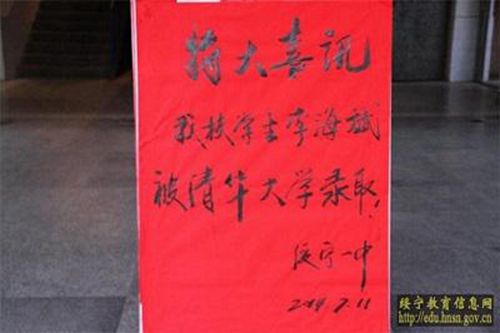 特大喜讯
我校学生李海斌
被清华大学录取!
绥宁一中
2014.7.11
绥宁教育信息网
http://edu.hnsn.gov.cn